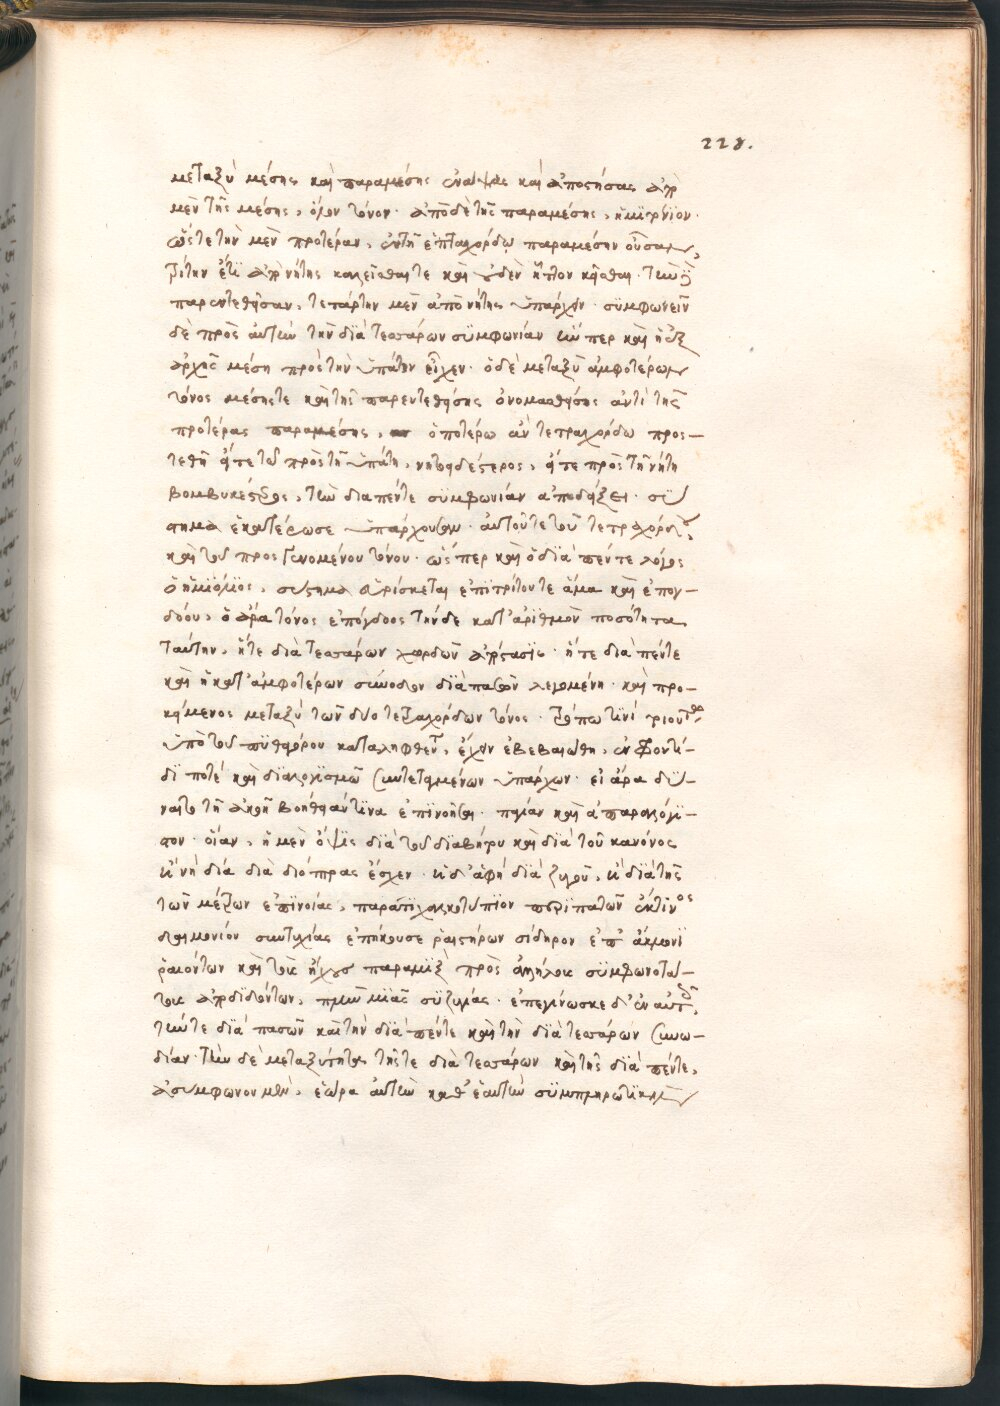 228.
μεταξὺ μέσης καὶ παραμέσης ἐνάψας καὶ ἀποστήσας ἀπὸ
μὲν τῆς μέσης, ὅλον τόνον· ἀπὸ δὲ τῆς παραμέσης, ἡμιτόνιον·
ὥστε τὴν μὲν προτέραν, ἐν τῇ ἑπταχόρδῳ παραμέσην οὖσαν,
τρίτην ἔτι ἀπὸ νήτης καλεῖσθαι τε καὶ οὐδὲν ἧττον κεῖσθαι· τὴν δὲ
παρεντεθεῖσαν, τετάρτην μὲν ἀπὸ νήτης ὑπάρχειν· συμφωνεῖν
δὲ πρὸς αὐτὴν τὴν διὰ τεσσάρων συμφωνίαν ἥν περ καὶ ἡ ἐξ
ἀρχῆς μέση πρὸς τὴν ὑπάτην εἶχεν· ὁ δὲ μεταξὺ ἀμφοτέρων
τόνος μέσης τε καὶ τῆς παρεντεθείσης ὀνομασθείσης ἀντὶ τῆς
προτέρας παραμέσης, ὁποτέρω ἂν τετραχόρδω προσ-
τεθῆ εἴτε τῷ πρὸς τῆ ὑπάτη, νητωδέστερος, εἴτε πρὸς τῆ νήτη
βομβυκέστερος, τὴν διαπέντε συμφωνίαν ἀποδείξει· σύ
στημα ἑκατέρωσε ὑπάρχουσαν· αὐτοῦ τε τοῦ τετραχόρδου,
καὶ τοῦ προσγενομένου τόνου· ὥσπερ καὶ ὁ διὰ πέντε λόγος
ὁ ἡμιόλιος, σύστημα εὑρίσκεται ἐπιτρίτου τε ἅμα καὶ ἐπογ-
δόου, ὁ ἄρα τόνος ἐπόγδοος τήνδε κατ' ἀριθμὸν ποσότητα
ταύτην, ἥτε διὰ τεσσάρων χορδῶν ἀπόστασις· ἥ τε διὰ πέντε
καὶ ἡ κατ' ἀμφοτέρων σύνοδον διὰ πασῶν λεγομένη· καὶ προ-
κείμενος μεταξὺ τῶν δύο τετραχόρδων τόνος· τρόπω τινὶ
ὑπὸ τοῦ πυθαγόρου καταληφθεῖσα, ἔχειν ἐβεβαιώθη, ἐν φροντί-
δι ποτὲ καὶ διαλογισμῶ συντεταμένων ὑπάρχων· εἰ ἄρα δύ-
ναιτο τῆ ἀκοῆ βοήθειάν τινα ἐπινοῆσαι· παγίαν καὶ ἀπαραλόγι-
στον· οἵαν, ἡ μὲν ὄψις διὰ τοῦ διαβήτου καὶ διὰ τοῦ κανόνος
ἢ νὴ δία διὰ διόπτρας ἔσχεν· ἡ δ' ἀφὴ διὰ ζυγοῦ, ἢ διὰ τῆς
τῶν μέτρων ἐπινοίας, παρά τι χαλκοτυπῖον περιπατῶν ἔκτινος
δαιμονίου συντυχίας ἐπήκουσε ῥαιστήρων σίδηρον ἐπ' ἄκμονι
ῥαιόντων καὶ τοὺς ἤχους παραμὶξ πρὸς ἀλλήλους συμφωνοτά-
τους ἀποδιδόντων, πλὴν μιᾶς συζυγίας· ἐπεγίνωσκε δ' ἐν αὐτοῖς
τήν τε διὰ πασῶν καὶ τὴν διὰ πέντε καὶ τὴν διὰ τεσσάρων συνω-
δίαν· τὴν δὲ μεταξύτητα τῆς τε διὰ τεσσάρων καὶ τῆς διὰ πέντε,
ἀσύμφωνον μὲν, ἑώρα αὐτὴν καθ' ἑαυτὴν συμπληρωτικὴν